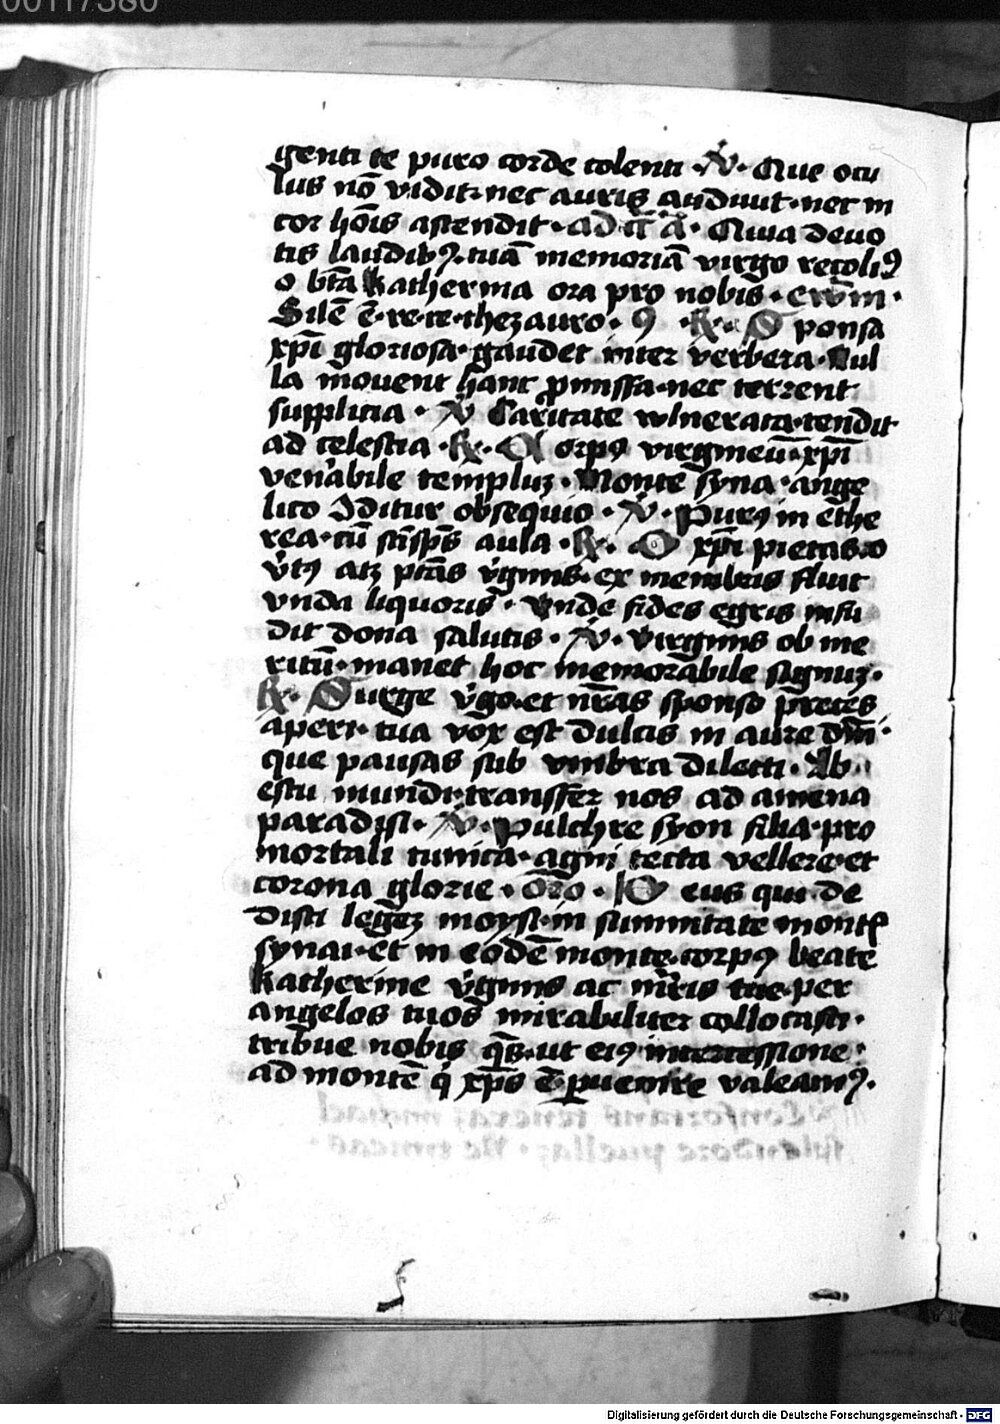 00117380
genti te puro corde colenti · V̷ · Que ocu
lus nō vidit · nec auris audiuit · nec in
cor hōis ascendit · ad
tis laudibꝰ · tuā memoriā virgo recoliꝰ
o btā katherina ora pro nobis ·
Silē ē · re · te · thezauro · ꝰ · ℟ · Sponsa
xp̄i gloriosa · gaudet inter verbera · Nul
la mouent hanc ꝓmissa · nec terrent
supplicia · V̷ Caritate wlnerata · tendit
ad celestia · ℟ · Corpꝰ virgineū · xp̄i
ven̄abile templuz · Monte syna · ange
lico 9ditur obsequio · V̷ · Purꝰ in ethe
rea · cū aula · ℟ · O xp̄i pietas · o
v̓tꝰ atqꝫ v̓ginis · ex membris fluit
vnda liquoris · Vnde fides egris infu
dit dona salutis · V̷ · Virginis ob me
ritū · manet hoc memorabile signuz ·
℟ · Surge v̓go · et nr̄as sponso preces
aperi · tua vox est dulcis in aure dn̄i ·
que pausas sub vmbra dilecti · Ab
estu mundi · transfer nos ad amena
paradisi · V̷ · Pulchre syon filia · pro
mortali tunica · agni tecta vellere · et
corona glorie · or̄o · Deus qui de
disti legez moysi · in summitate montis
synai · et in eodē monte · corpꝰ beate
katherine v̓ginis ac mr̄is tue · per
angelos tuos mirabiliter collocasti ·
tribue nobis qs̄ · ut eiꝰ intercessione ·
ad montē q̓ xp̄s ē · ꝑuenire valeamꝰ ·
Digitalisierung gefördert durch die Deutsche Forschungsgemeinschaft - DFG